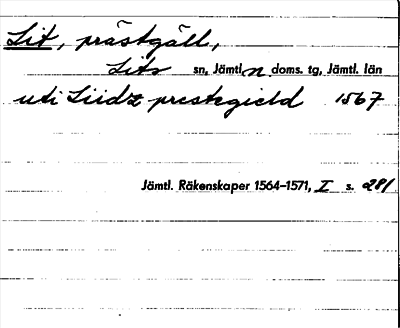 Lit, prästgäll,
Lits sn, Jämtl. n. doms. tg, Jämtl. län
uti Liidz prestegield 1567
Jämtl. Räkenskaper 1564–1571, I s. 281